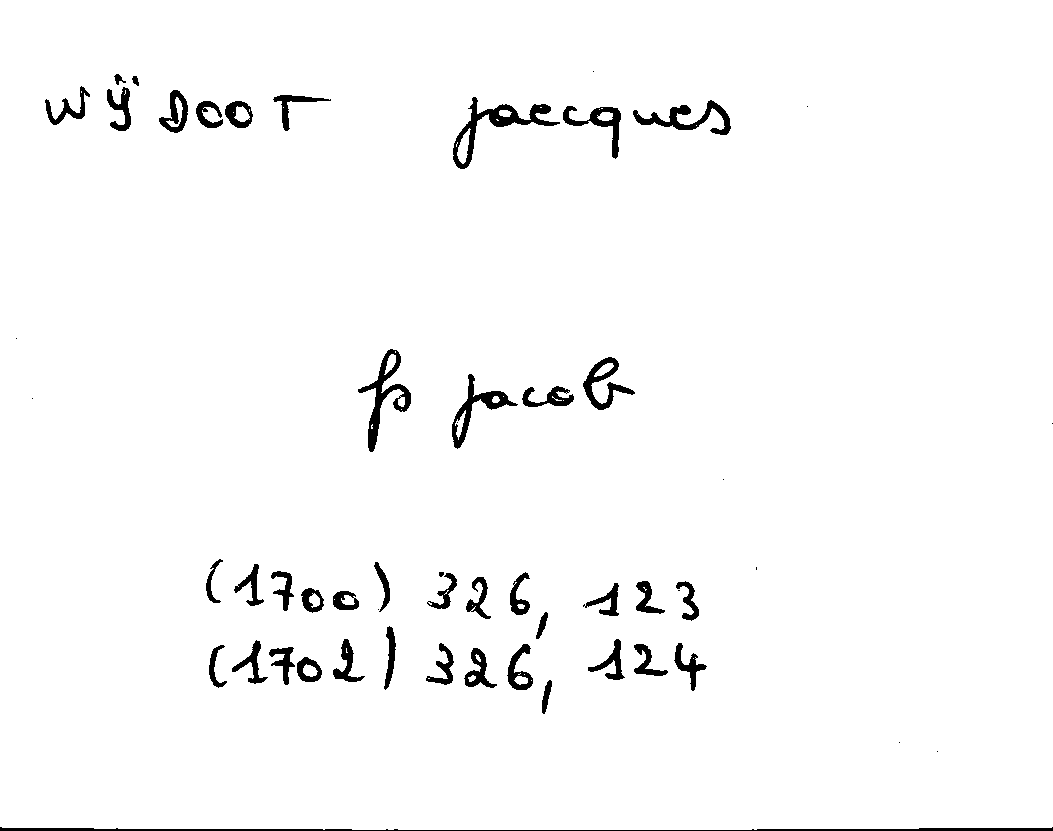 WŸDOOT jaecques
fs jacob
(1700) 326, 123
(1702) 326, 124